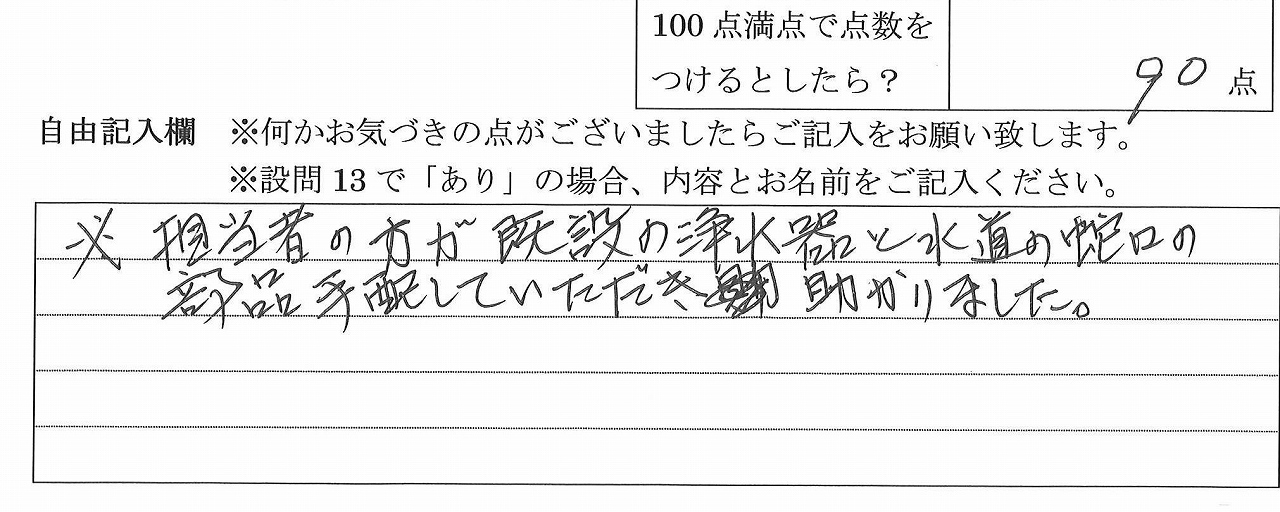 100点満点で点数を
つけるとしたら？
90 点
自由記入欄 ※何かお気づきの点がございましたらご記入をお願い致します。
※設問13で「あり」の場合、内容とお名前をご記入ください。
※ 担当者の方が既設の浄水器と水道の蛇口の
部品手配していただき 助かりました。